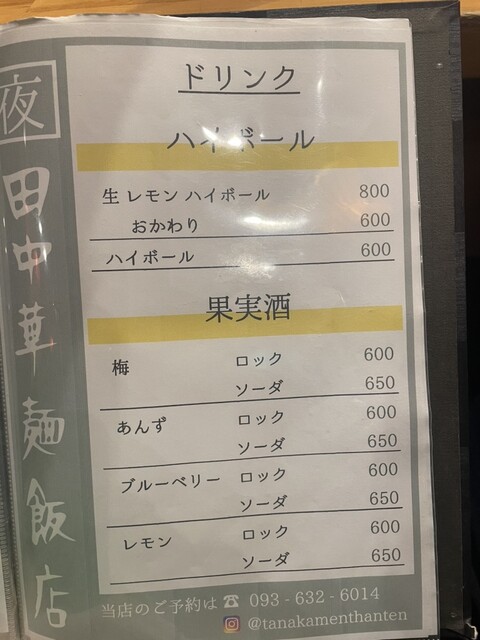 夜
田中華麺飯店
ドリンク
ハイボール
生レモンハイボール 800
おかわり 600
ハイボール 600
果実酒
梅 ロック 600
ソーダ 650
あんず ロック 600
ソーダ 650
ブルーベリー ロック 600
ソーダ 650
レモン ロック 600
ソーダ 650
当店のご予約は☎ 093-632-6014
@tanakamenthanten